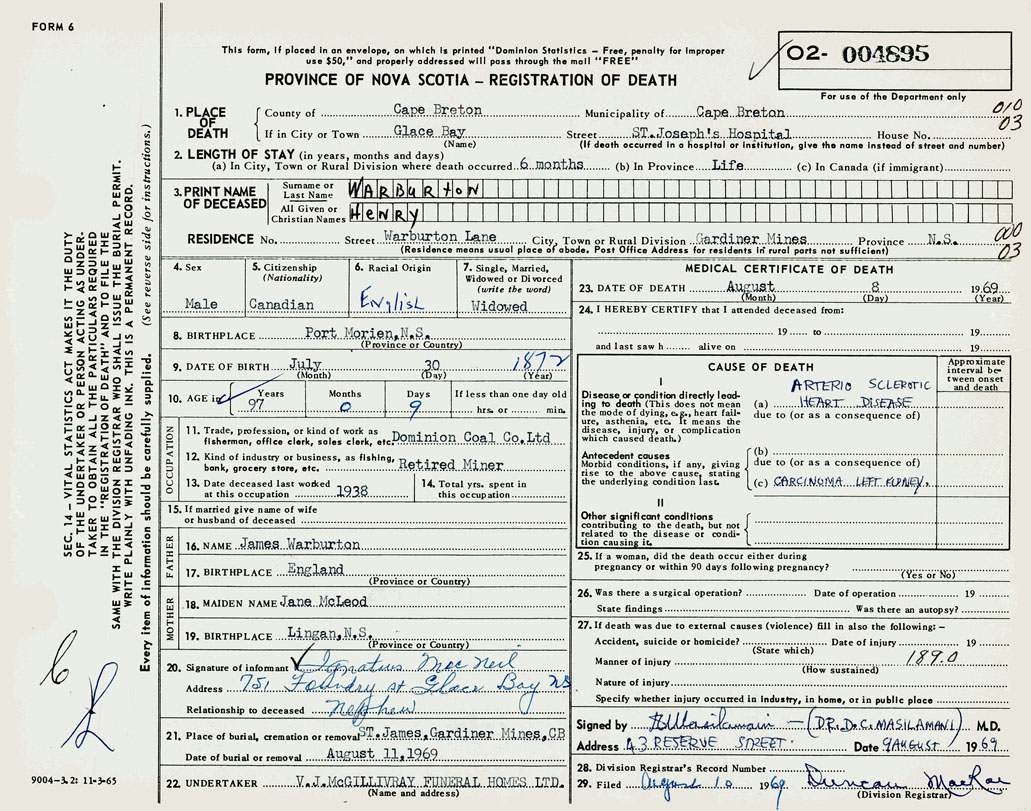 FORM 6
This form, if placed in an envelope, on which is printed "Dominion Statistics – Free, penalty for improper
use $50," and properly addressed will pass through the mail "FREE"
PROVINCE OF NOVA SCOTIA – REGISTRATION OF DEATH
02- 004895
For use of the Department only
010
03
1. PLACE OF DEATH
County of Cape Breton Municipality of Cape Breton
If in City or Town Glace Bay Street ST.Joseph's Hospital House No.
(Name) (If death occurred in a hospital or institution, give the name instead of street and number)
2. LENGTH OF STAY (in years, months and days)
(a) In City, Town or Rural Division where death occurred 6 months (b) In Province Life (c) In Canada (if immigrant)
3. PRINT NAME OF DECEASED
Surname or Last Name WARBURTON
All Given or Christian Names HENRY
RESIDENCE No. Street Warburton Lane City, Town or Rural Division Gardiner Mines Province N.S.
(Residence means usual place of abode. Post Office Address for residents in rural parts not sufficient)
000
03
4. Sex
Male
5. Citizenship
(Nationality)
Canadian
6. Racial Origin
English
7. Single, Married,
Widowed or Divorced
(write the word)
Widowed
8. BIRTHPLACE Port Morien,N.S.
(Province or Country)
9. DATE OF BIRTH July 30 1872
(Month) (Day) (Year)
10. AGE in Years Months Days If less than one day old
97 0 9 hrs. or min.
OCCUPATION
11. Trade, profession, or kind of work as
fisherman, office clerk, sales clerk, etc. Dominion Coal Co.Ltd
12. Kind of industry or business, as fishing,
bank, grocery store, etc. Retired Miner
13. Date deceased last worked
at this occupation 1938
14. Total yrs. spent in
this occupation
15. If married give name of wife
or husband of deceased
FATHER
16. NAME James Warburton
17. BIRTHPLACE England
(Province or Country)
MOTHER
18. MAIDEN NAME Jane McLeod
19. BIRTHPLACE Lingan,N.S.
(Province or Country)
20. Signature of informant Ignatius MacNeil
Address 751 Foundry st Glace Bay NS.
Relationship to deceased nephew
21. Place of burial, cremation or removal ST.James,Gardiner Mines,CB
Date of burial or removal August 11,1969
22. UNDERTAKER V.J.McGILLIVRAY FUNERAL HOMES LTD.
(Name and address)
MEDICAL CERTIFICATE OF DEATH
23. DATE OF DEATH August 8 1969
(Month) (Day) (Year)
24. I HEREBY CERTIFY that I attended deceased from:
19 to 19
and last saw h alive on 19
CAUSE OF DEATH
Approximate
interval be-
tween onset
and death
I
Disease or condition directly lead-
ing to death (This does not mean
the mode of dying, e.g., heart fail-
ure, asthenia, etc. It means the
disease, injury, or complication
which caused death.)
ARTERIO SCLEROTIC
(a) HEART DISEASE
due to (or as a consequence of)
Antecedent causes
Morbid conditions, if any, giving
rise to the above cause, stating
the underlying condition last.
(b)
due to (or as a consequence of)
(c) CARCINOMA LEFT KIDNEY.
II
Other significant conditions
contributing to the death, but not
related to the disease or condi-
tion causing it.
25. If a woman, did the death occur either during
pregnancy or within 90 days following pregnancy?
(Yes or No)
26. Was there a surgical operation? Date of operation 19
State findings Was there an autopsy?
27. If death was due to external causes (violence) fill in also the following: –
Accident, suicide or homicide? Date of injury 19
(State which)
Manner of injury 189.0
(How sustained)
Nature of injury
Specify whether injury occurred in industry, in home, or in public place
Signed by (DR.D.C.MASILAMANI) M.D.
Address 43 RESERVE STREET. Date 9 AUGUST 1969
28. Division Registrar's Record Number
29. Filed August 10 1969 Duncan MacRae
(Division Registrar)
SEC. 14 – VITAL STATISTICS ACT MAKES IT THE DUTY
OF THE UNDERTAKER OR PERSON ACTING AS UNDER-
TAKER TO OBTAIN ALL THE PARTICULARS REQUIRED
IN THE "REGISTRATION OF DEATH" AND TO FILE THE
SAME WITH THE DIVISION REGISTRAR WHO SHALL ISSUE THE BURIAL PERMIT.
WRITE PLAINLY WITH UNFADING INK. THIS IS A PERMANENT RECORD.
Every item of information should be carefully supplied. (See reverse side for instructions.)
9004–3.2: 11-3-65